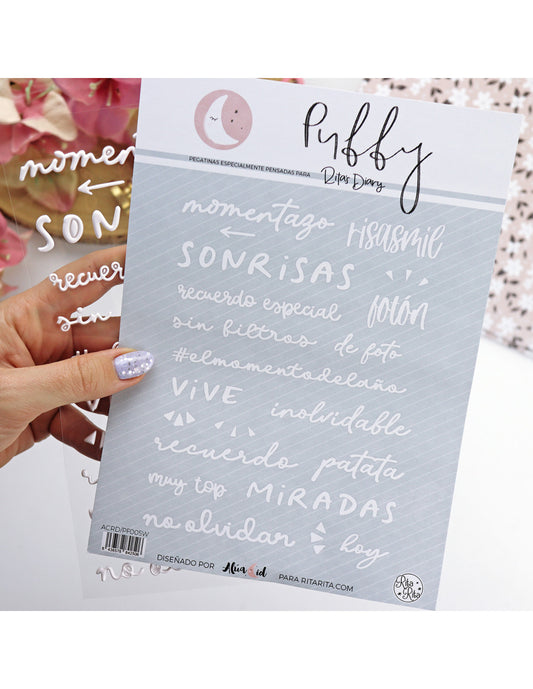 Puffy
PEGATINAS ESPECIALMENTE PENSADAS PARA
Rita's Diary
momentazo risasmil
SONRISAS
recuerdo especial fotón
sin filtros de foto
#elmomentodelaño
VIVE inolvidable
recuerdo patata
muy top MIRADAS
no olvidar hoy
ACRD/PF005W
DISEÑADO POR Alúa Cid PARA RITARITA.COM
Rita Rita
moment
SON
recuer
sin
no o